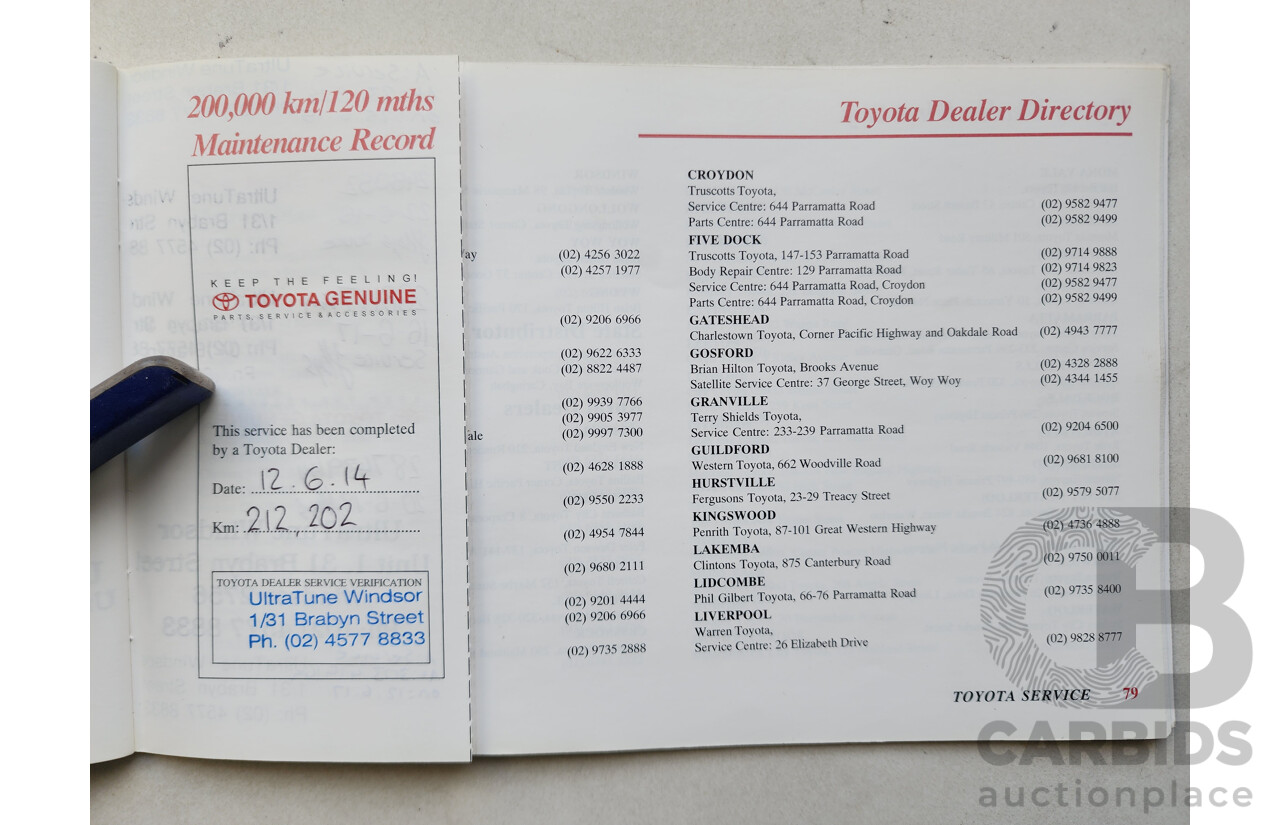 200,000 km/120 mths
Maintenance Record
KEEP THE FEELING!
TOYOTA GENUINE
PARTS, SERVICE & ACCESSORIES
This service has been completed
by a Toyota Dealer:
Date: 12.6.14
Km: 212,202
TOYOTA DEALER SERVICE VERIFICATION
UltraTune Windsor
1/31 Brabyn Street
Ph. (02) 4577 8833
ay (02) 4256 3022
(02) 4257 1977
(02) 9206 6966
(02) 9622 6333
(02) 8822 4487
(02) 9939 7766
(02) 9905 3977
ale (02) 9997 7300
(02) 4628 1888
(02) 9550 2233
(02) 4954 7844
(02) 9680 2111
(02) 9201 4444
(02) 9206 6966
(02) 9735 2888
Toyota Dealer Directory
CROYDON
Truscotts Toyota,
Service Centre: 644 Parramatta Road (02) 9582 9477
Parts Centre: 644 Parramatta Road (02) 9582 9499
FIVE DOCK
Truscotts Toyota, 147-153 Parramatta Road (02) 9714 9888
Body Repair Centre: 129 Parramatta Road (02) 9714 9823
Service Centre: 644 Parramatta Road, Croydon (02) 9582 9477
Parts Centre: 644 Parramatta Road, Croydon (02) 9582 9499
GATESHEAD
Charlestown Toyota, Corner Pacific Highway and Oakdale Road (02) 4943 7777
GOSFORD
Brian Hilton Toyota, Brooks Avenue (02) 4328 2888
Satellite Service Centre: 37 George Street, Woy Woy (02) 4344 1455
GRANVILLE
Terry Shields Toyota,
Service Centre: 233-239 Parramatta Road (02) 9204 6500
GUILDFORD
Western Toyota, 662 Woodville Road (02) 9681 8100
HURSTVILLE
Fergusons Toyota, 23-29 Treacy Street (02) 9579 5077
KINGSWOOD
Penrith Toyota, 87-101 Great Western Highway (02) 4736 4888
LAKEMBA
Clintons Toyota, 875 Canterbury Road (02) 9750 0011
LIDCOMBE
Phil Gilbert Toyota, 66-76 Parramatta Road (02) 9735 8400
LIVERPOOL
Warren Toyota,
Service Centre: 26 Elizabeth Drive (02) 9828 8777
TOYOTA SERVICE 79
CARBIDS
auctionplace